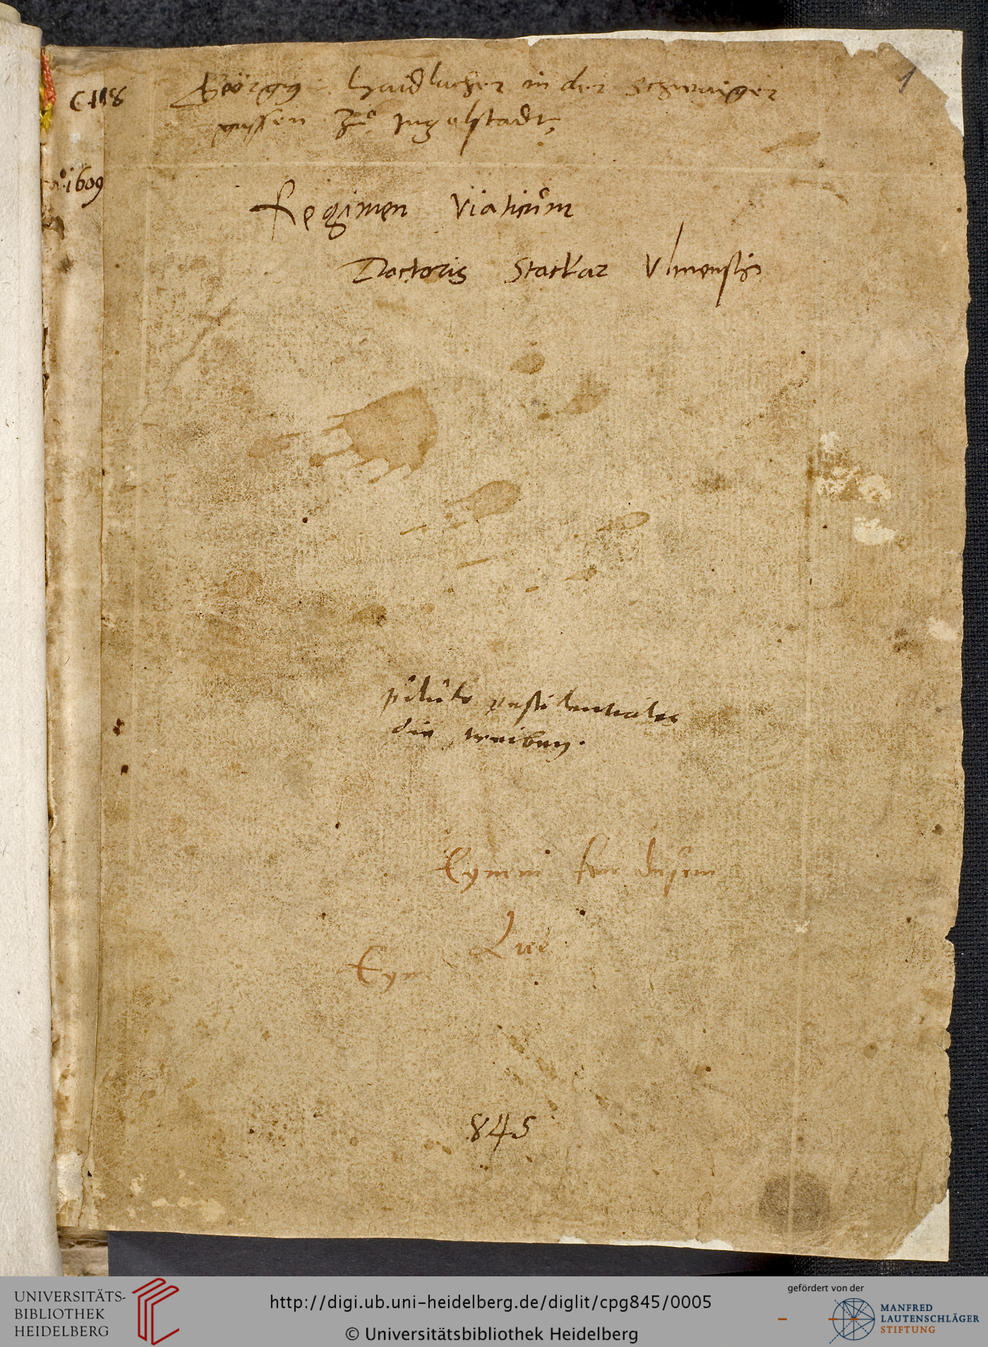 1
C 118
Geörgg Haidlacher in der Schwaiger
gassen Zů Ingolstadt
1609
Regimen Viaticům
Doctoris Stackar Vlmensis
pilůle pestilentiales
die treiben.
845
UNIVERSITÄTS-
BIBLIOTHEK
HEIDELBERG
http://digi.ub.uni-heidelberg.de/diglit/cpg845/0005
© Universitätsbibliothek Heidelberg
gefördert von der
MANFRED
LAUTENSCHLÄGER
STIFTUNG